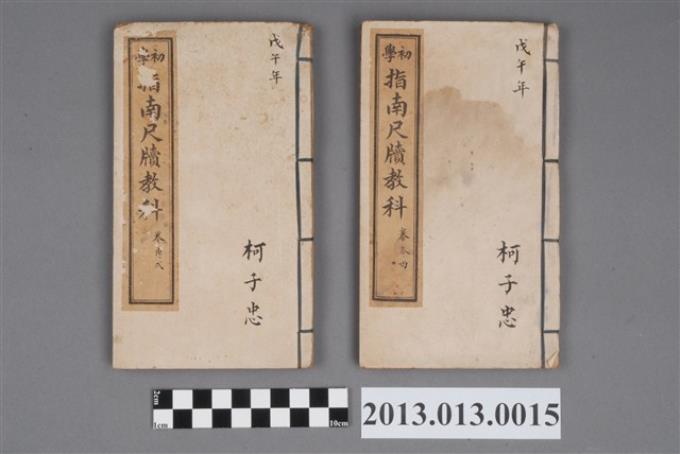 戊午年
初學
指南尺牘教科
柯子忠
戊午年
初學
指南尺牘教科 卷叁四
柯子忠
2cm
1cm
10cm
2013.013.0015